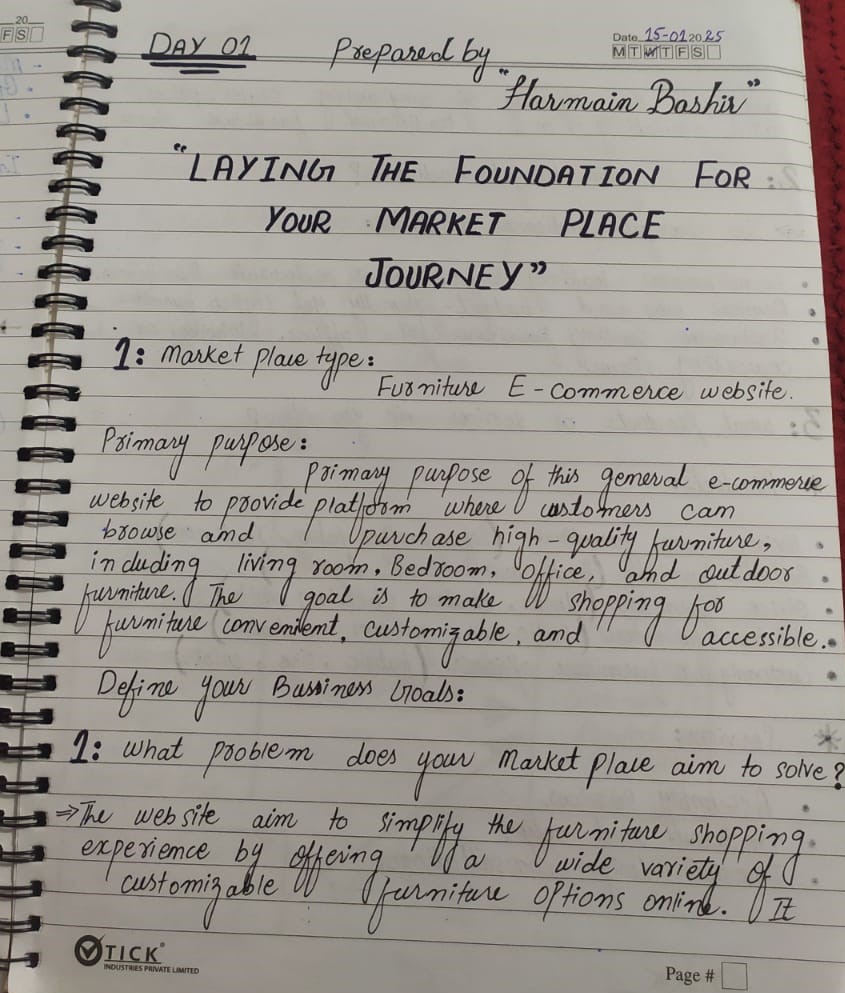 20
F S
DAY 01 Prepared by Date 15-01 2025
M T W T F S
"Harmain Bashir"
"LAYING THE FOUNDATION FOR
YOUR MARKET PLACE
JOURNEY"
1: Market Place type:
Furniture E-commerce website.
Primary purpose:
Primary purpose of this general e-commerce
website to provide platform where customers can
browse and purchase high-quality furniture,
including living room, Bedroom, office, and outdoor
furniture. The goal is to make shopping for
furniture convenient, customizable, and accessible.
Define your Bussiness Goals:
1: What problem does your Market Place aim to solve?
⇒ The website aim to simplify the furniture shopping
experience by offering a wide variety of
customizable furniture options online. It
TICK
INDUSTRIES PRIVATE LIMITED
Page #